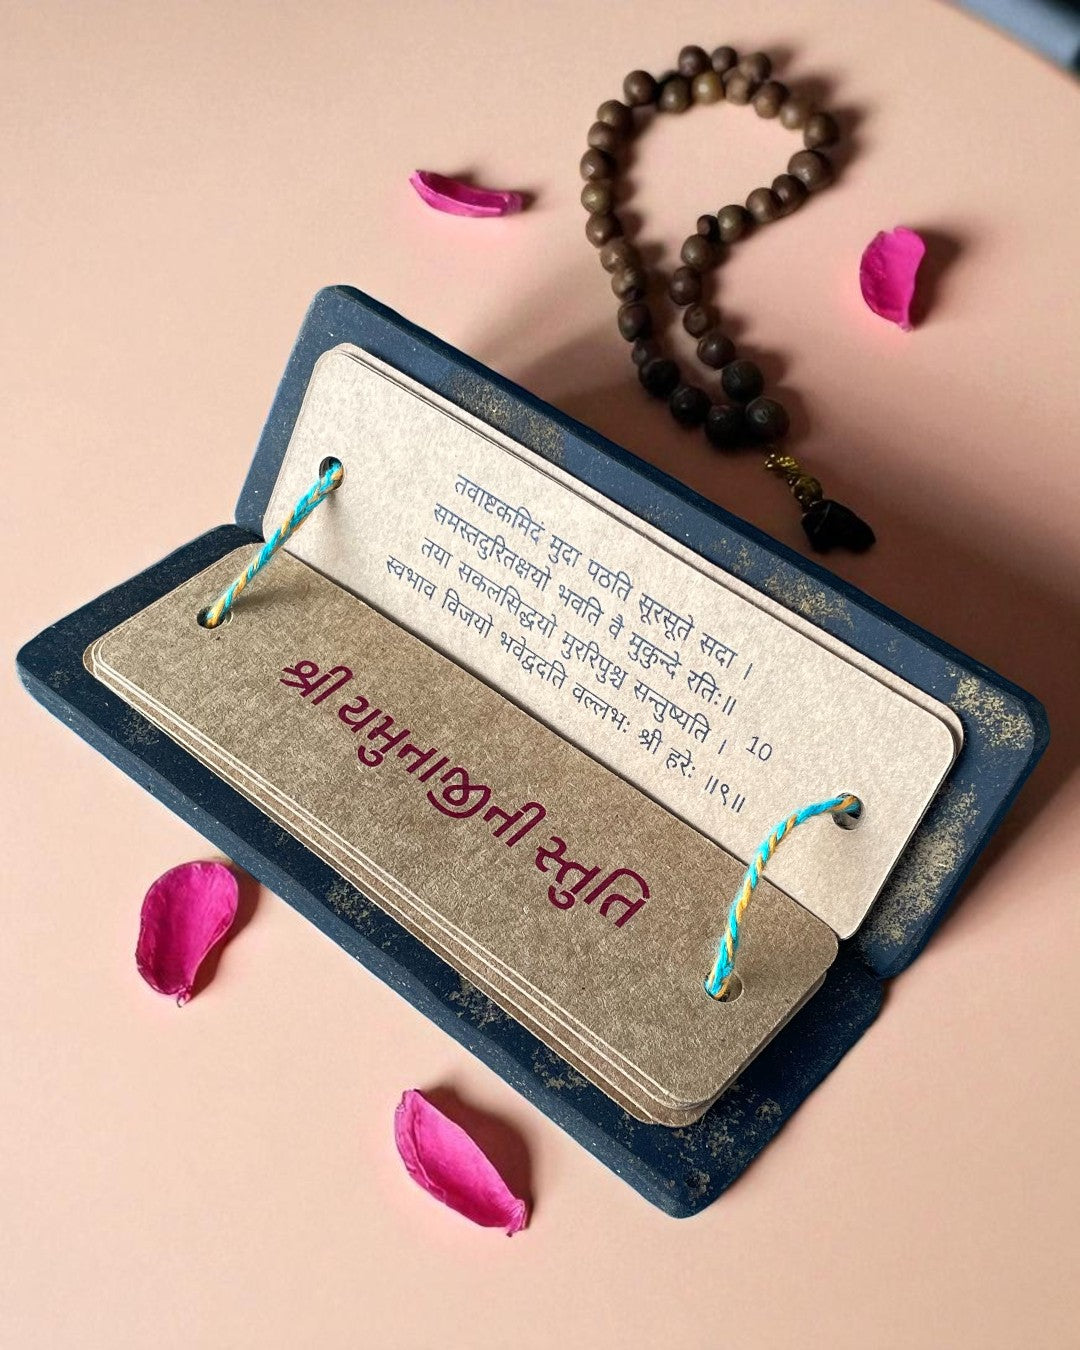 तवाष्टकमिदं मुदा पठति सूरसूते सदा ।
समस्तदुरितक्षयो भवति वै मुकुन्दे रतिः॥
तया सकलसिद्धयो मुररिपुश्च सन्तुष्यति ।
स्वभाव विजयो भवेद्वदति वल्लभः श्री हरेः ॥९॥
10
શ્રી યમુનાજીની સ્તુતિ